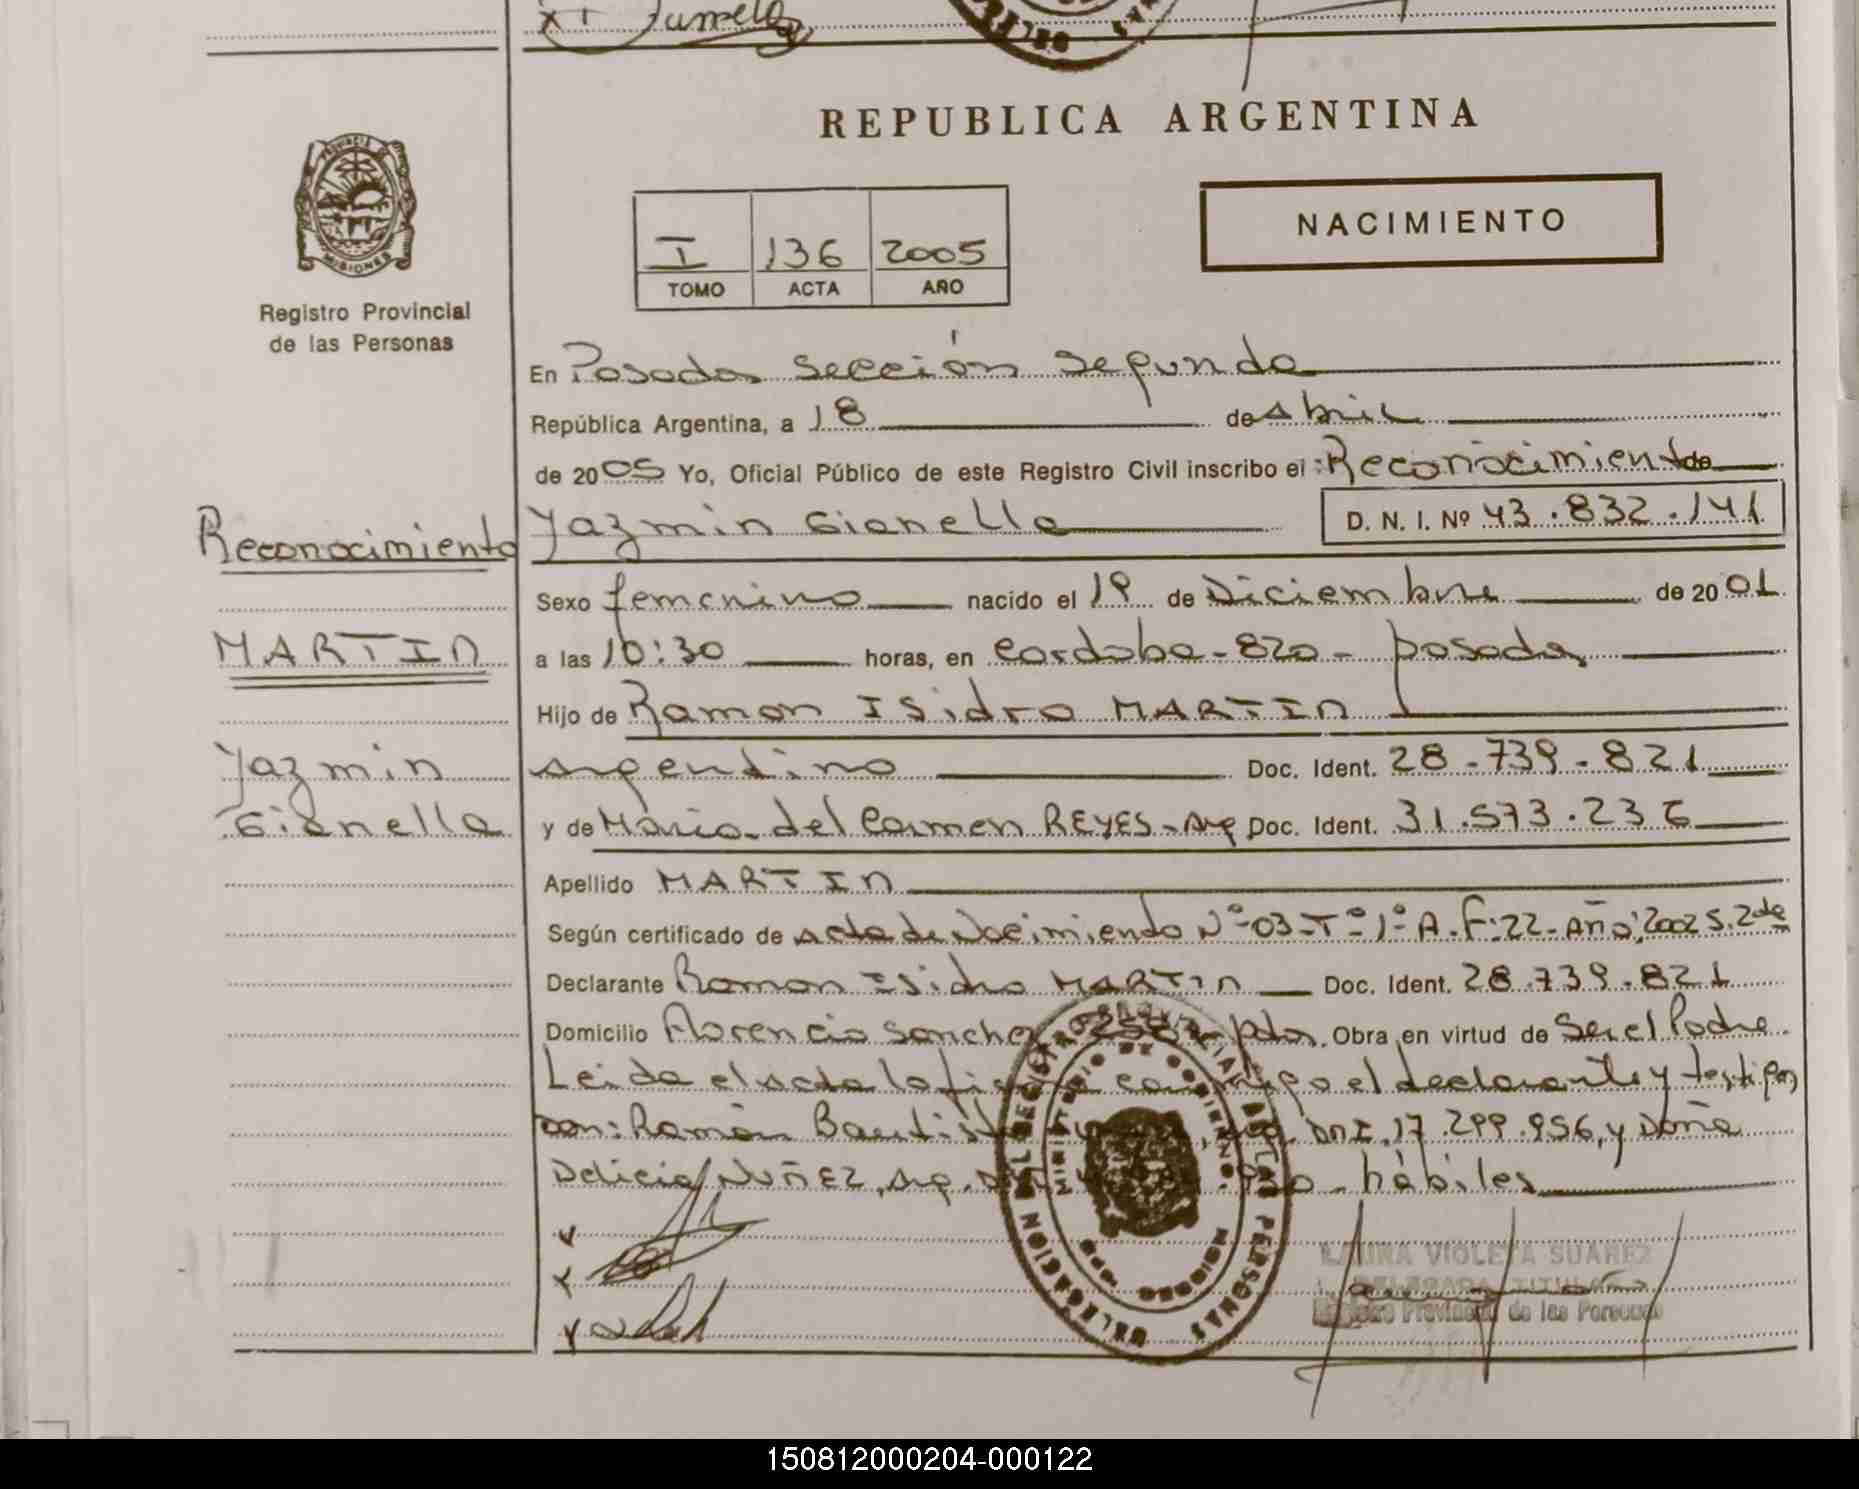 REPUBLICA ARGENTINA
PROVINCIA DE
MISIONES
Registro Provincial
de las Personas
I 136 2005
TOMO ACTA AÑO
NACIMIENTO
En Posadas sección segunda
República Argentina, a 18 de abril
de 2005 Yo, Oficial Público de este Registro Civil inscribo el: Reconocimiento de
Yazmin Gianella D. N. I. Nº 43.832.141
Sexo femenino nacido el 19 de Diciembre de 2001
a las 10:30 horas, en Cordoba - 820 - posadas
Hijo de Ramon Isidro MARTIN
argentino Doc. Ident. 28-739-821
y de Maria del Carmen REYES - Arg Doc. Ident. 31.573.236
Apellido MARTIN
Según certificado de acta de Nacimiento Nº 03-Tº-1º A.F:22- Año:2002 S.2da
Declarante Ramon Isidro MARTIN Doc. Ident. 28.739.821
Domicilio Florencio Sanchez pdas. Obra en virtud de Ser el Padre
Leida el acta la conmigo el declarante y testigos
Ramón Bautista DNI.17.299.956, y Doña
Delicia NUÑEZ, Arg. - hábiles
Reconocimiento
MARTIN
Yazmin
Gianella
DELEGACION DEL REGISTRO PROVINCIAL DE LAS PERSONAS
MINISTERIO DE GOBIERNO
LAURA VIOLETA SUAREZ
DELEGADA TITULAR
Registro Provincial de las Personas
150812000204-000122